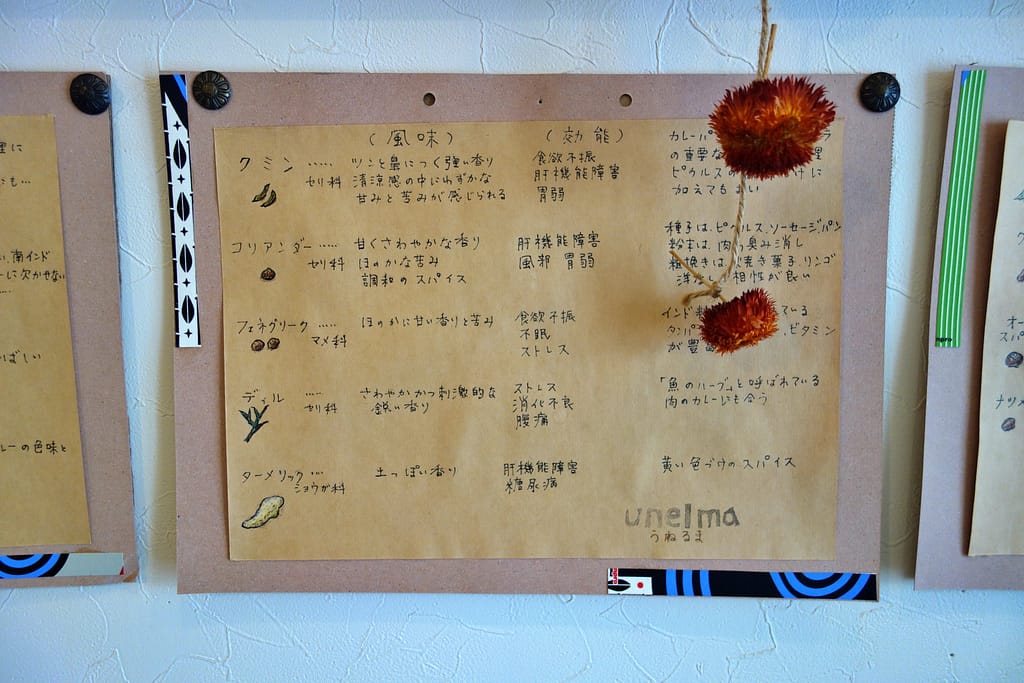 (風味)
(効能)
クミン ‥‥‥ セリ科
ツンと鼻につく強い香り
清涼感の中にわずかな
甘みと苦みが感じられる
食欲不振
肝機能障害
胃弱
カレーパ
の重要な 理
ピクルスの けに
加えてもよい
コリアンダー ‥‥‥ セリ科
甘くさわやかな香り
ほのかな苦み
調和のスパイス
肝機能障害
風邪 胃弱
種子は、ピクルス、ソーセージ、パン
粉末は、肉の臭み消し
粗挽きは、焼き菓子、リンゴ
相性が良い
フェネグリーク ‥‥‥ マメ科
ほのかに甘い香りと苦み
食欲不振
不眠
ストレス
インド ている
タンパ ビタミン
が豊
ディル ‥‥‥ セリ科
さわやかかつ刺激的な
鋭い香り
ストレス
消化不良
腹痛
「魚のハーブ」と呼ばれている
肉のカレーにも合う
ターメリック ‥‥ ショウガ科
土っぽい香り
肝機能障害
糖尿病
黄い色づけのスパイス
unelma
うねるま
理に
にも…
い、南インド
ーに欠かせない
ばしい
レーの色味と
オー
スパ
ナツメ